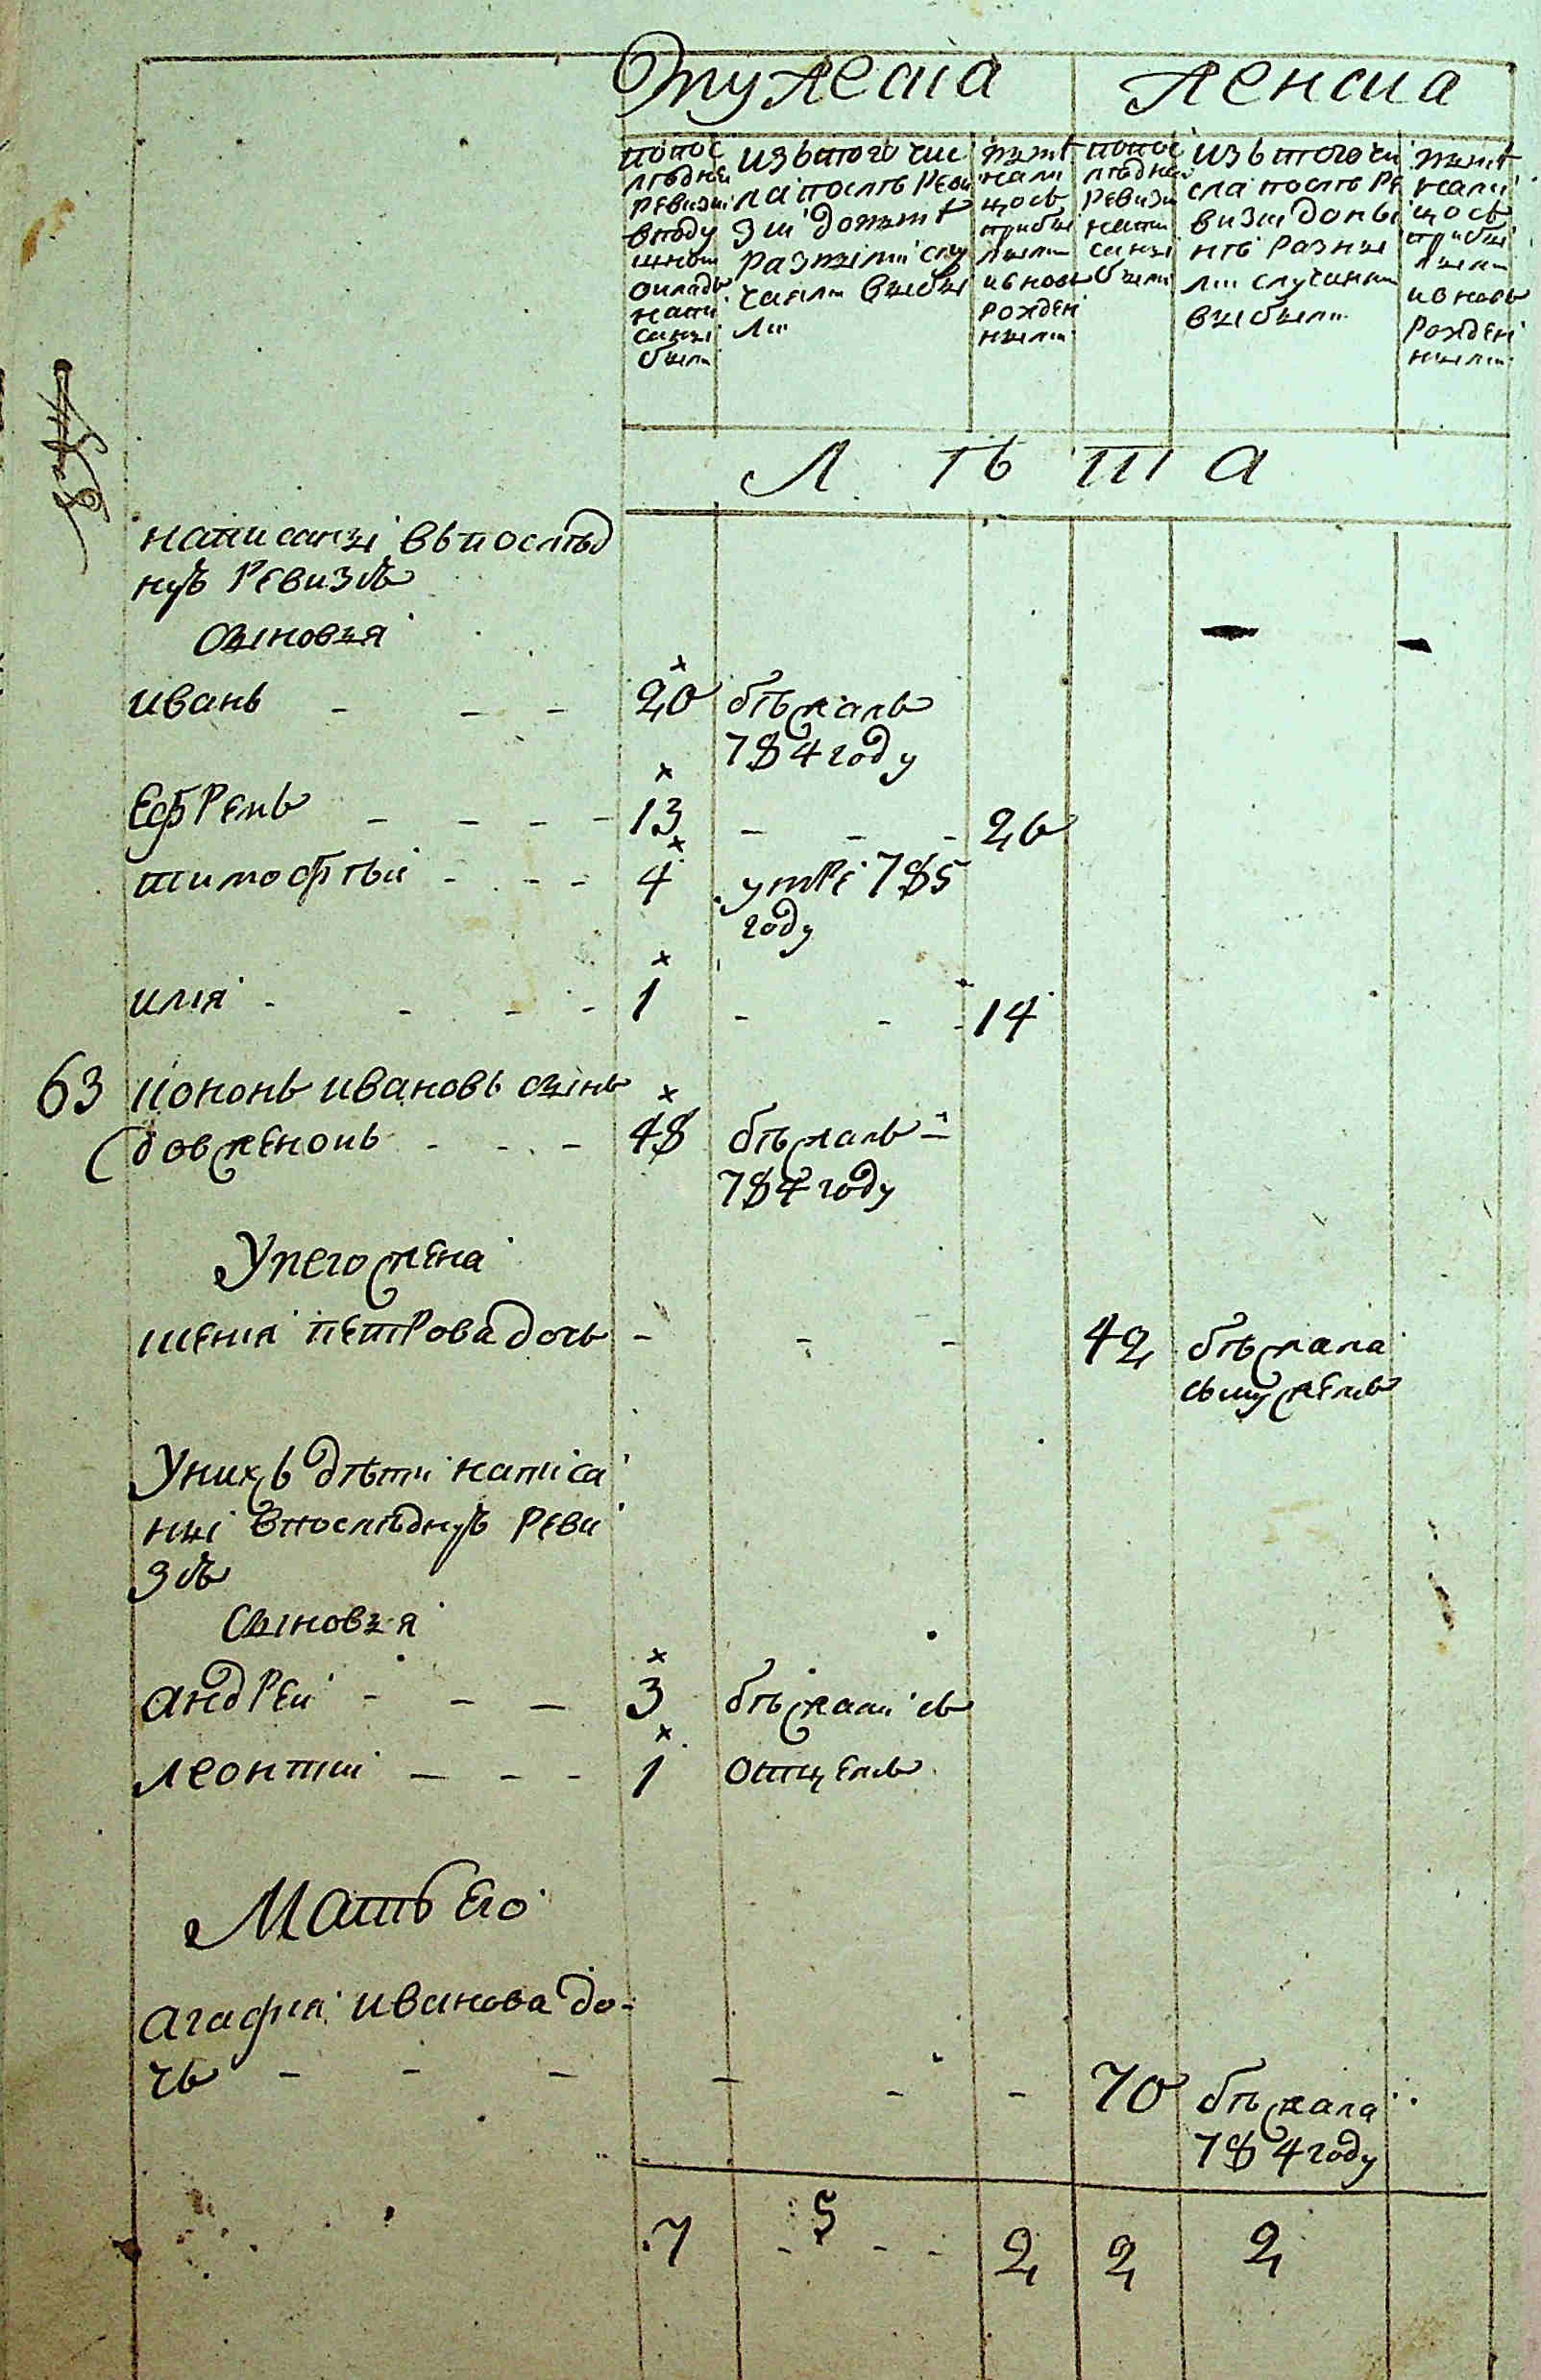 мужеска женска
попос лѣдней ревизии вподу шном окладѣ напи саны были
изътого чис ла послѣ реви зии донынѣ разными слу чаями выбы ли
нынѣ нали цось прибы лыми ивновь рожден ными
попос лѣдней ревизии напи саны были
изътого чи сла послѣ ре визии доны нѣ разны ми случаями выбыли
нынѣ нали цось прибы лыми ивновь рожден ными
лѣта
написаны въпослѣд
нуѣ ревизіѣ
сыновья
иванъ - - - 20 бѣжалъ
784 году
ефремъ - - - - 13 - - - 26
тимофѣй - - - 4 умре 785
году
илія - - - - 1 - - - 14
63 кононъ ивановъ сынъ
довженокъ - - - 48 бѣжалъ
784 году
унего жена
ксенія петрова дочь - - - 42 бѣжала
смужемъ
унихъ дѣти написа
ны впослѣднуѣ реви
зіѣ
сыновья
андрей - - - 3 бѣжали съ
леонтий - - - 1 отцемъ
мать его
агафия иванова до-
чь - - - - - - 70 бѣжала
784 году
7 - 5 - - 2 2 2